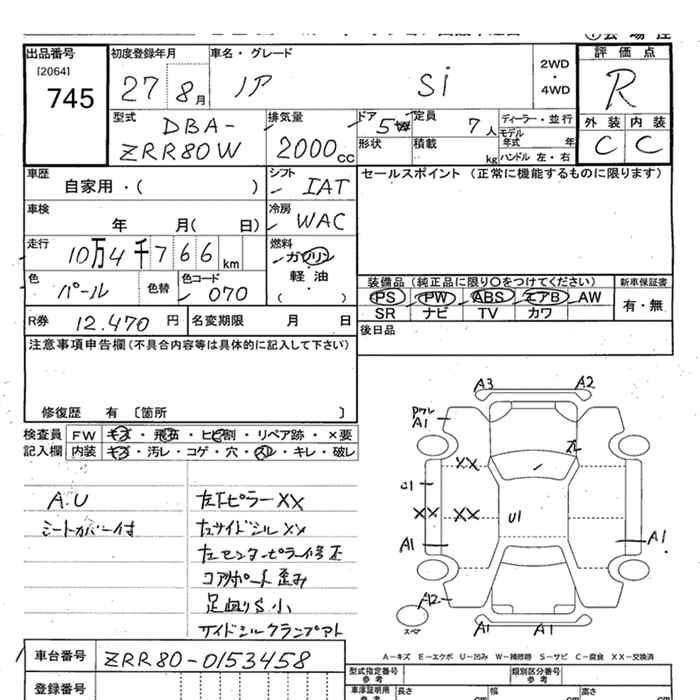 出品番号 初度登録年月 車名・グレード 2WD・4WD 評価点
[2064]
745 27 8月 ノア Si R
型式 排気量 ドア 定員 ディーラー・並行 外装 内装
DBA-ZRR80W 2000cc 5 7人 モデル年式 年 C C
形状 積載 kg ハンドル 左・右
車歴 シフト セールスポイント (正常に機能するものに限ります)
自家用・( ) IAT
車検 冷房
年 月( 日) WAC
走行 燃料
10万4千766km ガソリン
軽・油
( )
色 色替 色コード 装備品 (純正品に限り〇をつけてください) 新車保証書
パール 070 PS PW ABS エアB AW 有・無
SR ナビ TV カワ
R券 12.470円 名変期限 月 日 後日品
注意事項申告欄(不具合内容等は具体的に記入して下さい)
修復歴 有 〔箇所 〕
検査員 FW キズ・飛石・ヒビ割・リペア跡・×要
記入欄 内装 キズ・汚レ・コゲ・穴・スレ・キレ・破レ
A.U
シートカバー付
左Fピラー XX
左サイドシル XX
左センターピラー修正
コアサポート歪み
足廻りS小
サイドシルクランプアト
A3 A2
A1
XX
U1
XX XX U1
A1 A1
A2
スペア A1 A1
A-キズ E-エクボ U-凹み W-補修跡 S-サビ C-腐食 XX-交換済
車台番号 ZRR80-0153458 型式指定番号 参考 類別区分番号 参考
登録番号 車庫証明用 参考 長さ cm 幅 cm 高さ cm